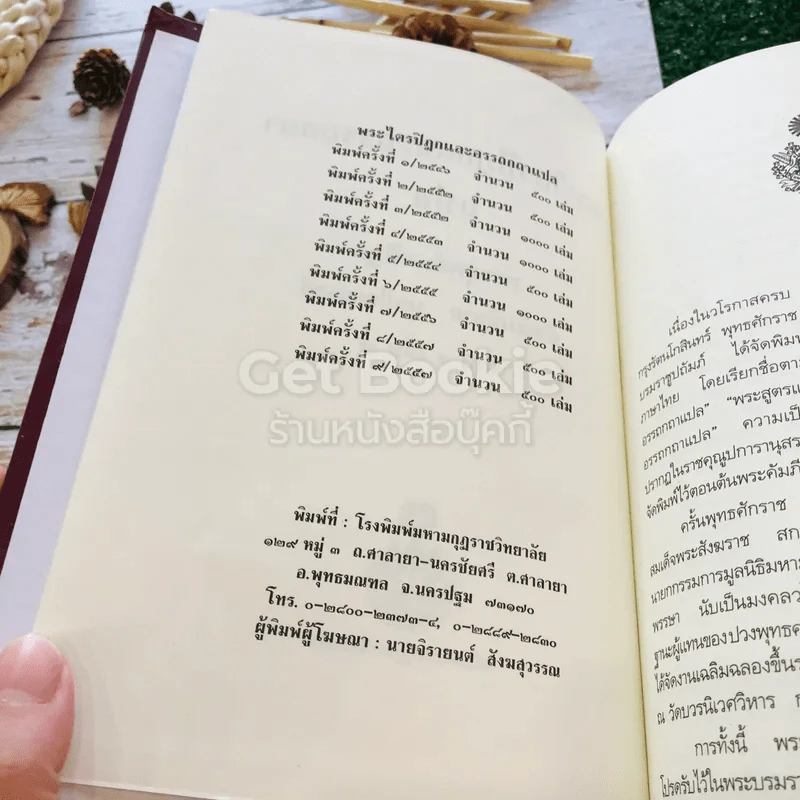 พระไตรปิฎกและอรรถกถาแปล
พิมพ์ครั้งที่ ๑/๒๕๔๖ จำนวน ๕๐๐ เล่ม
พิมพ์ครั้งที่ ๒/๒๕๕๒ จำนวน ๕๐๐ เล่ม
พิมพ์ครั้งที่ ๓/๒๕๕๒ จำนวน ๑๐๐๐ เล่ม
พิมพ์ครั้งที่ ๔/๒๕๕๓ จำนวน ๑๐๐๐ เล่ม
พิมพ์ครั้งที่ ๕/๒๕๕๔ จำนวน ๕๐๐ เล่ม
พิมพ์ครั้งที่ ๖/๒๕๕๕ จำนวน ๑๐๐๐ เล่ม
พิมพ์ครั้งที่ ๗/๒๕๕๖ จำนวน ๕๐๐ เล่ม
พิมพ์ครั้งที่ ๘/๒๕๕๗ จำนวน ๕๐๐ เล่ม
พิมพ์ครั้งที่ ๙/๒๕๕๗ จำนวน ๕๐๐ เล่ม
Get Bookie
ร้านหนังสือบุ๊คกี้
พิมพ์ที่ : โรงพิมพ์มหามกุฏราชวิทยาลัย
๑๒๙ หมู่ ๓ ถ.ศาลายา-นครชัยศรี ต.ศาลายา
อ.พุทธมณฑล จ.นครปฐม ๗๓๑๗๐
โทร. ๐-๒๘๐๐-๒๓๗๓-๔, ๐-๒๘๘๙-๒๘๓๐
ผู้พิมพ์ผู้โฆษณา : นายจิรายนต์ สังฆสุวรรณ
เนื่องในวโรกาสครบ
กรุงรัตนโกสินทร์ พุทธศักราช
บรมราชูปถัมภ์ ได้จัดพิมพ์
ภาษาไทย โดยเรียกชื่อตา
อรรถกถาแปล" "พระสูตรแ
อรรถกถาแปล" ความเป็
ปรากฏในราชคุณูปการานุสร
จัดพิมพ์ไว้ตอนต้นพระคัมภี
ครั้นพุทธศักราช
สมเด็จพระสังฆราช สก
นายกกรรมการมูลนิธิมหาม
พรรษา นับเป็นมงคลว
ฐานะผู้แทนของปวงพุทธศ
ได้จัดงานเฉลิมฉลองขึ้น
ณ วัดบวรนิเวศวิหาร ก
การทั้งนี้ พร
โปรดรับไว้ในพระบรมรา